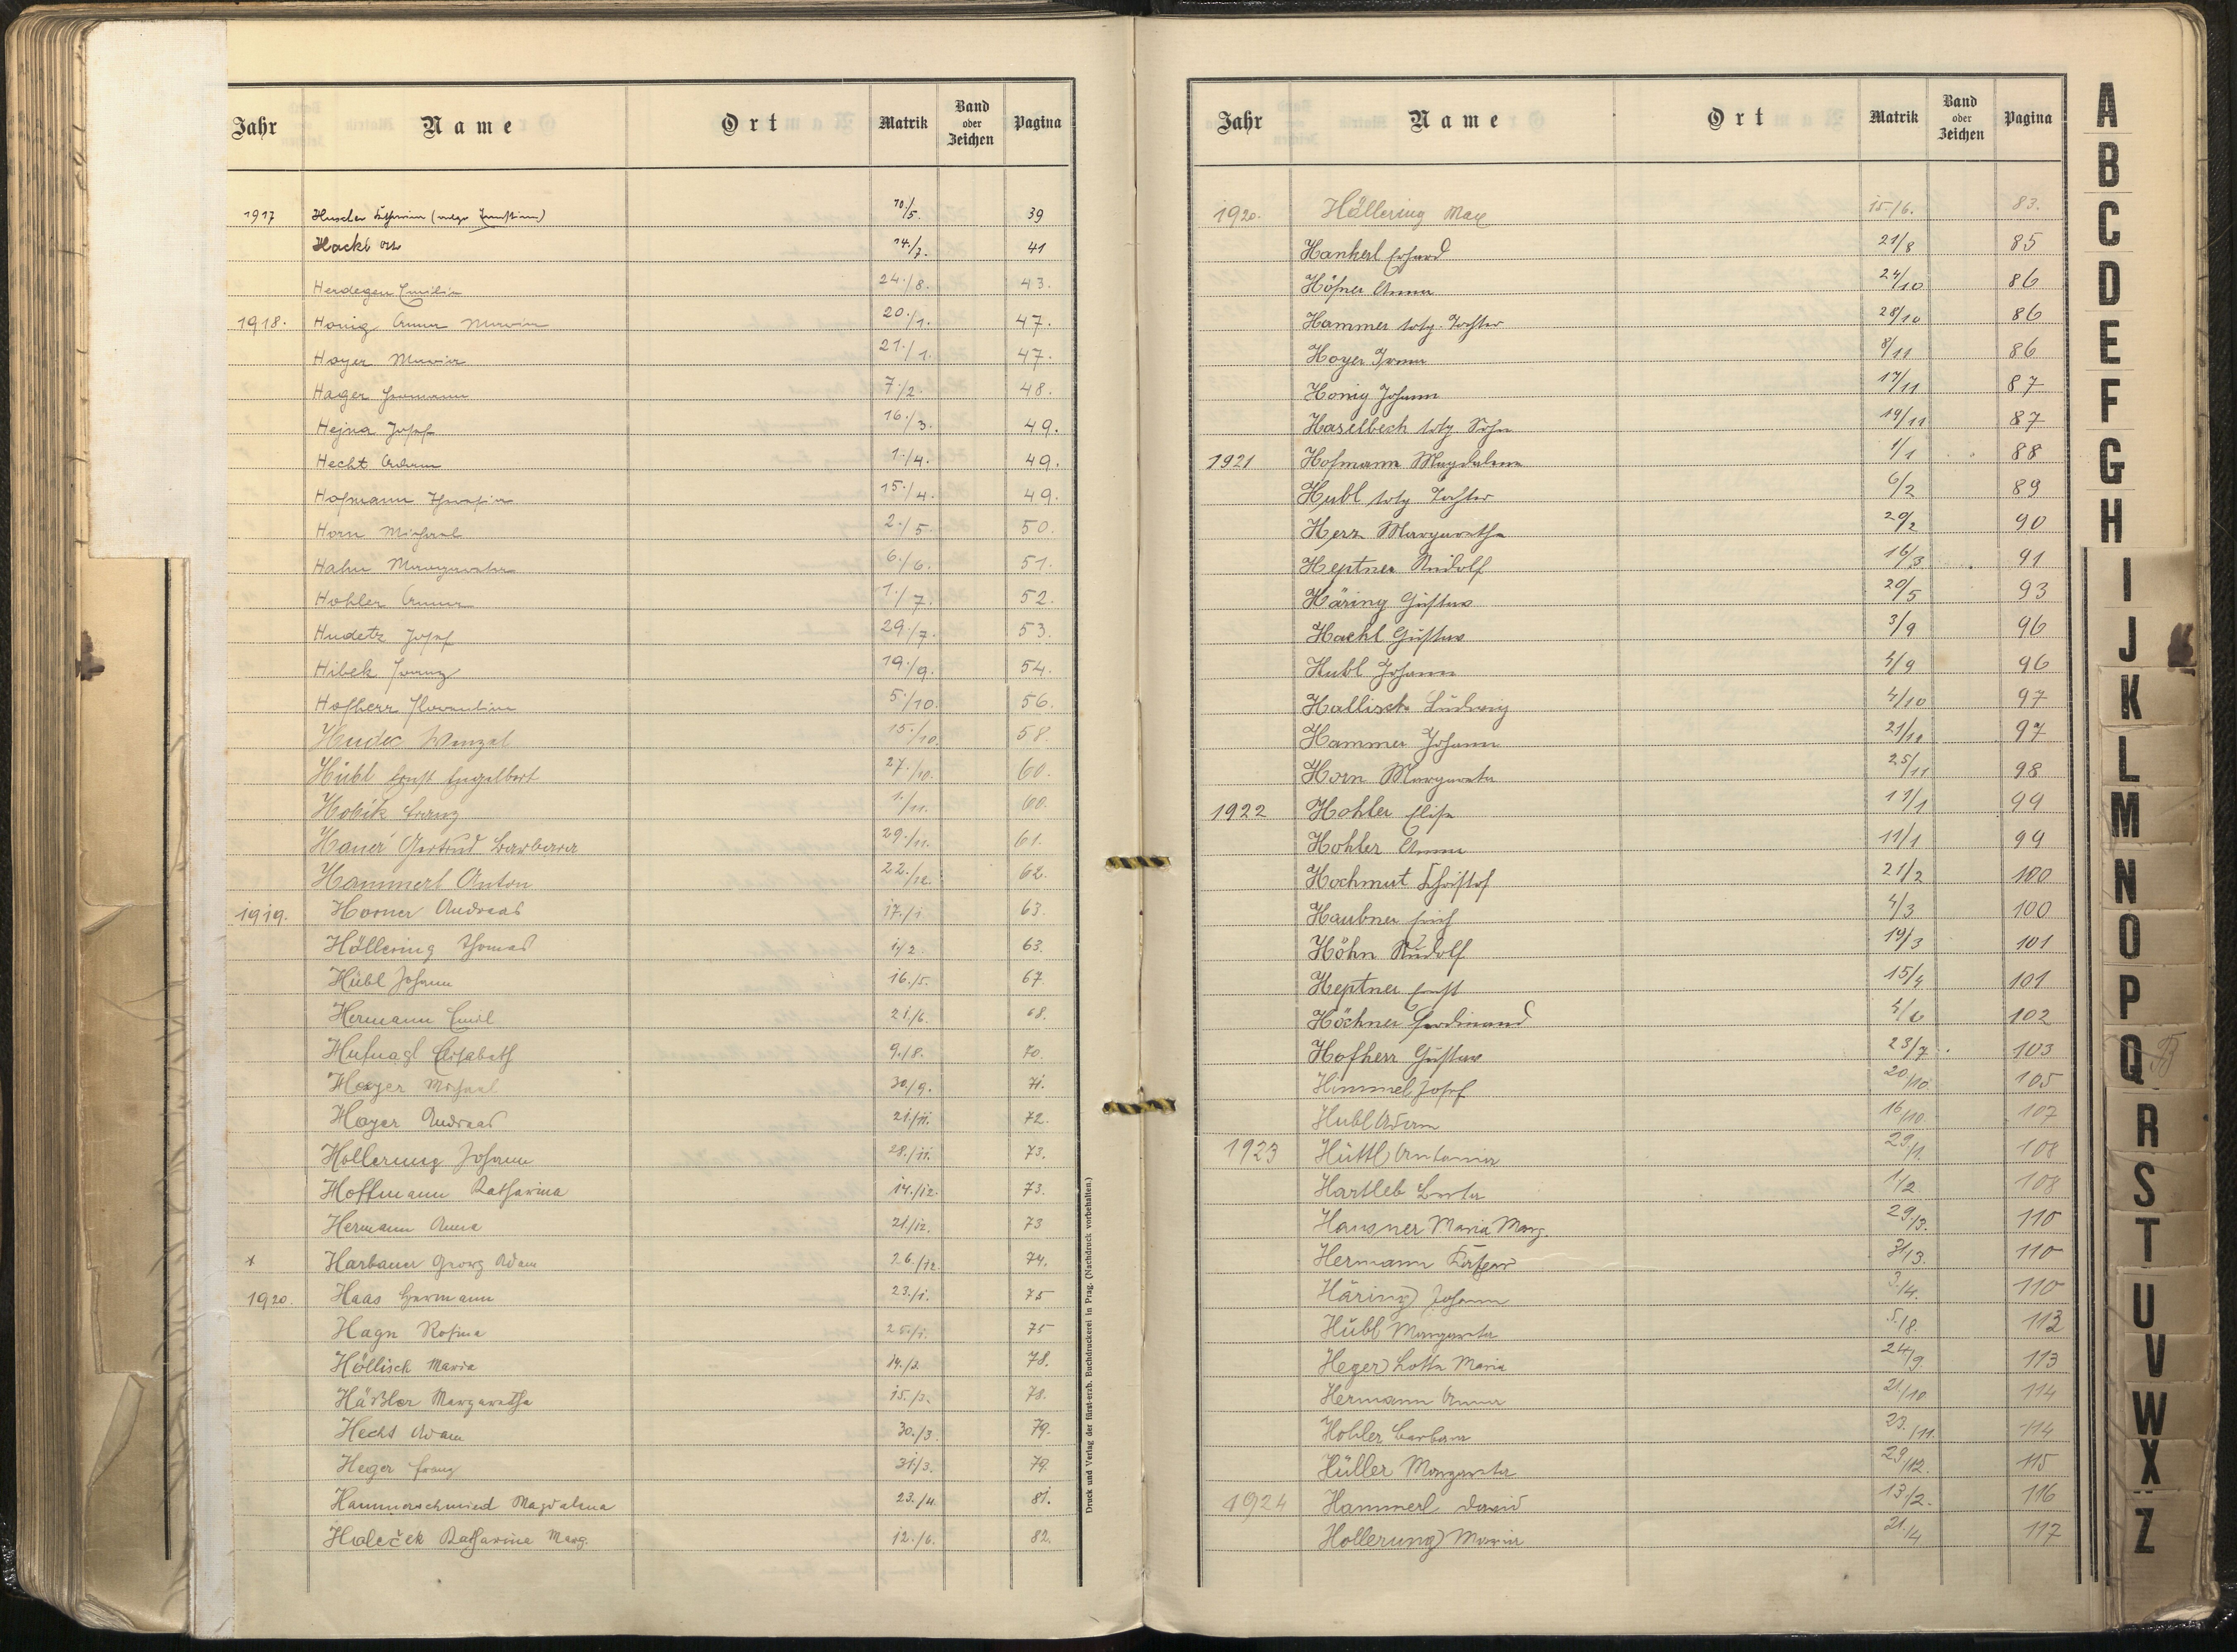 Jahr Name Ort Matrik Band oder Zeichen Pagina
1917 Huscher 10./5. 39
Hackl 14./7. 41
Herdegen Emilie 24./8. 43.
1918. Honig Anna Maria 20./1. 47.
Hoyer Maria 21./1. 47.
Hager Hermann 7./2. 48.
Hejna Josef 16./3. 49.
Hecht Adam 1./4. 49.
Hofmann 15./4. 49.
Horn Michael 2./5. 50.
Hahn Margareta 6./6. 51.
Hohler Anna 1./7. 52.
Hudetz Josef 29./7. 53.
Hibek Franz 19./9. 54.
Hofherr Florentine 5./10. 56.
Hudec Wenzel 15./10. 58.
Hübl Ernst Engelbert 27./10. 60.
Hobik Franz 1./11. 60.
Hauer Gertrud Barbara 29./11. 61.
Hammerl Anton 22./12. 62.
1919. Horner Andreas 17./1. 63.
Höllering Thomas 1/2. 63.
Hübl Johann 16./5. 67.
Hermann Emil 21./6. 68.
Hufnagl Elisabeth 9./8. 70.
Hoyer Michael 30./9. 71.
Hoyer Andreas 21./11. 72.
Hollerung Johann 28./11. 73.
Hoffmann Katharina 14./12. 73.
Hermann Anna 21./12. 73
Harbauer Georg Adam 26./12. 74.
1920. Haas Hermann 23./1. 75
Hagn Rosina 25./1. 75
Höllisch Maria 14./2. 78.
Häßler Margaretha 15./3. 78.
Hecht Adam 30./3. 79.
Heger Franz 31./3. 79.
Hammerschmied Magdalena 23./4. 81.
Holeček Katharina Marg. 12./6. 82.
Druck und Verlag der fürst-erzb. Buchdruckerei in Prag. (Nachdruck vorbehalten.)
Jahr Name Ort Matrik Band oder Zeichen Pagina
1920. Höllering Max 15./6. 83.
Hankerl Erhard 21/8 85
Höfner Anna 24/10 86
Hammer totg. Tochter 28/10 86
Hoyer Irma 8/11 86
Honig Johann 17/11 87
Haselbech totg. Sohn 19/11 87
1921 Hofmann Magdalena 1/1 88
Hubl totg Tochter 6/2 89
Herz Margaretha 20/2 90
Heptner Rudolf 16/3 91
Häring Gustav 20/5 93
Hachl Gustav 3/9 96
Hubl Johann 4/9 96
Hallisch Ludwig 4/10 97
Hammer Johann 21/10 97
Horn Margareta 25/11 98
1922 Hohler Elisa 11/1 99
Hohler Anna 11/1 99
Hochmut Christof 21/2 100
Haubner Erich 4/3 100
Höhn Rudolf 19/3 101
Heptner Ernst 15/4 101
Höchner Ferdinand 4/6 102
Hofherr Gustav 23/7 103
Himmel Josef 20/10. 105
Hubl Adam 16/10 107
1923 Hüttl Antonia 29/1. 108
Hartleb Berta 1/2 108
Hausner Maria Marg. 29/3. 110
Hermann 31/3. 110
Häring Johann 3./4. 110
Hübl Margareta 5./8. 113
Heger Lotte Maria 24/9. 113
Hermann Anna 21/10 114
Hohler Barbara 23./11. 114
Hüller Margareta 29/12. 115
1924 Hammerl David 13/2. 116
Hollerung Maria 21/4 117
A
B
C
D
E
F
G
H
I
J
K
L
M
N
O
P
Q
R
S
T
U
V
W
X
Z